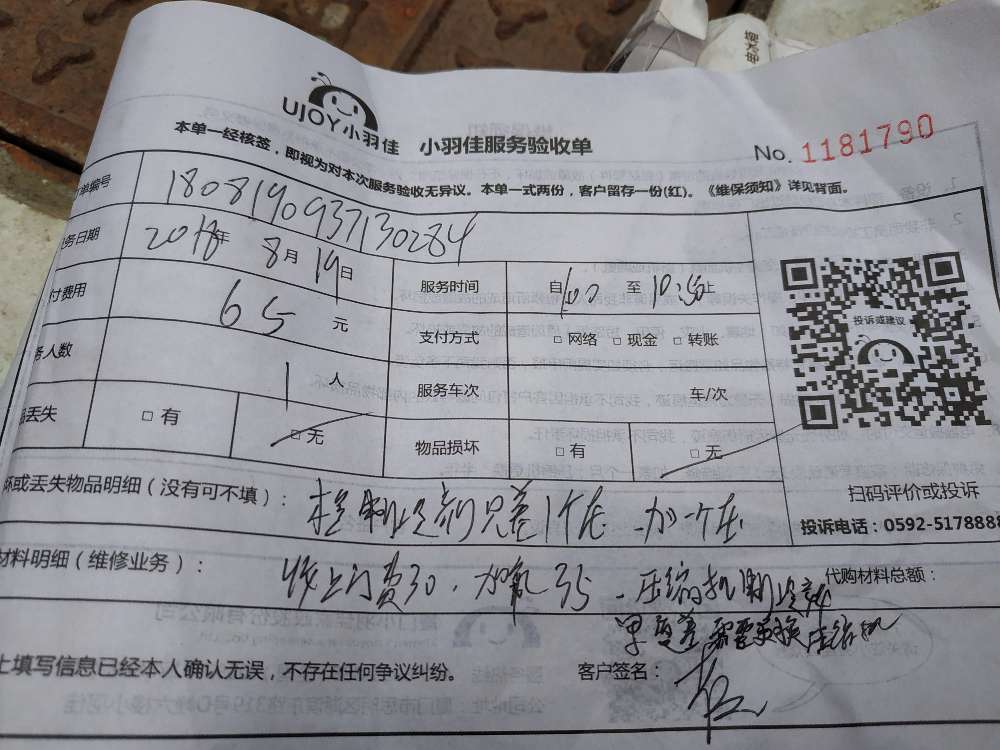 电冰箱
UJOY小羽佳 小羽佳服务验收单
No. 1181790
本单一经核签，即视为对本次服务验收无异议。本单一式两份，客户留存一份(红)。《维保须知》详见背面。
单编号 180819093730284
务日期 2018年 8月19日 服务时间 自 至 10:30止
付费用 65 元 支付方式 □ 网络 □ 现金 □ 转账
投诉或建议
务人数 1 人 服务车次 车/次
丢失 □ 有 □ 无 物品损坏 □ 有 □ 无
扫码评价或投诉
投诉电话：0592-5178888
坏或丢失物品明细（没有可不填）： 加一个压
材料明细（维修业务）： 收上门费30，加氟35 压缩机制冷效
代购材料总额：
果 差 需要更换压缩机
上填写信息已经本人确认无误，不存在任何争议纠纷。 客户签名：